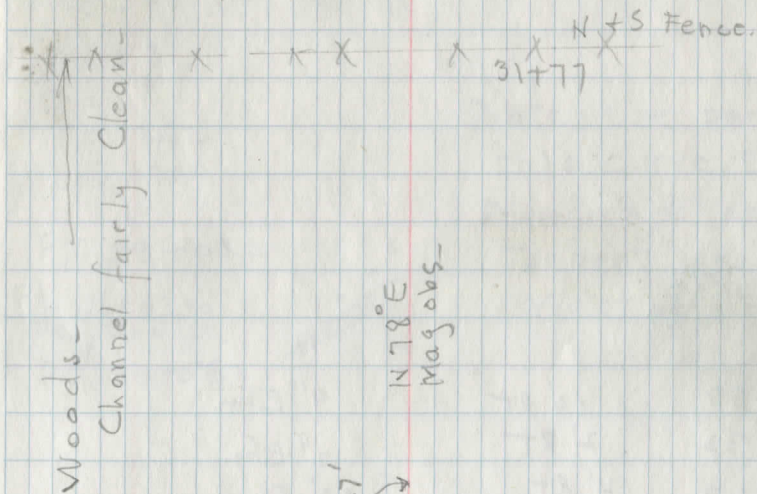 N + S Fence.
31+77
Woods-
Channel fairly Clean-
N78°E
Mag obs-
7'